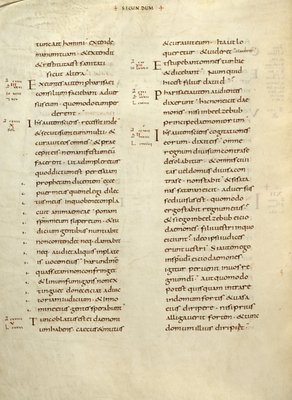 SECUNDUM
tunc ait homini · extende
manum tuam · & extendit
& restituta est sanitati
sicut altera ·
Exeuntes autem pharisaei
consilium faciebant aduer
sus eum · quomodo eum per
derent ·
Ihs autem sciens · recessit inde
& secuti sunt eum multi · &
curauit eos omnes · & prae
cepit eis · ne manifestum eum
facerent · ut adimpleretur
quod dictum est per esaiam
prophetam dicentem · ecce
puer meus quem elegi · dilec
tus meus in quo bene compla
cuit animae meae · ponam
spiritum super eum · & iu
dicium gentibus nuntiabit
non contendet · neq; clamabit
neq; audiet aliquis in plate
is uocem eius · harundinem
quassatam non confringet
& linum fumigans non ex
tinguet · donec eiciat ad uic
toriam iudicium · & in no
mine eius gentes sperabunt
Tunc oblatus est ei daemoni
um habens · caecus & mutus
& curauit eum · ita ut lo
queretur & uideret
Et stupebant omnes turbae
& dicebant · numquid
hic est filius dauid ·
Pharisaei autem audientes
dixerunt · hic non eicit dae
mones · nisi in beelzebub
principe daemoniorum
Ihs autem sciens cogitationes
eorum · dixit eis · omne
regnum diuisum contra se
desolatur · & omnis ciui
tas uel domus diuisa con
tra se · non stabit · & si sata
nas satanan eicit · aduersus
se diuisus est · quomodo
ergo stabit regnum eius ·
& si ego in beelzebub eicio
daemones · filii uestri in quo
eiciunt · ideo ipsi iudices
erunt uestri · Si autem ego
in spu dei eicio daemones
igitur peruenit in uos reg
num dei · aut quomodo
potest quisquam intrare
in domum fortis · & uasa
eius diripere · nisi prius
alligauerit fortem · & tunc
domum illius diripiet ·